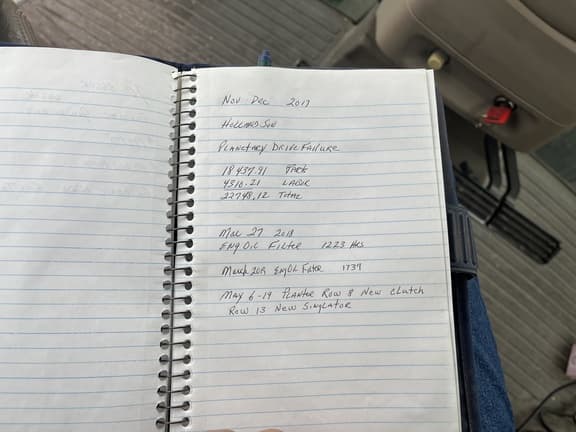 Nov Dec 2017
Planetary Drive Failure
18 437.91 Parts
4310.21 Labor
22748.12 Total
Mar 27 2018
Eng Oil Filter 1223 Hrs
March Eng Oil Filter 1737
May 6-19 Planter Row 8 New Clutch
Row 13 New Singlator